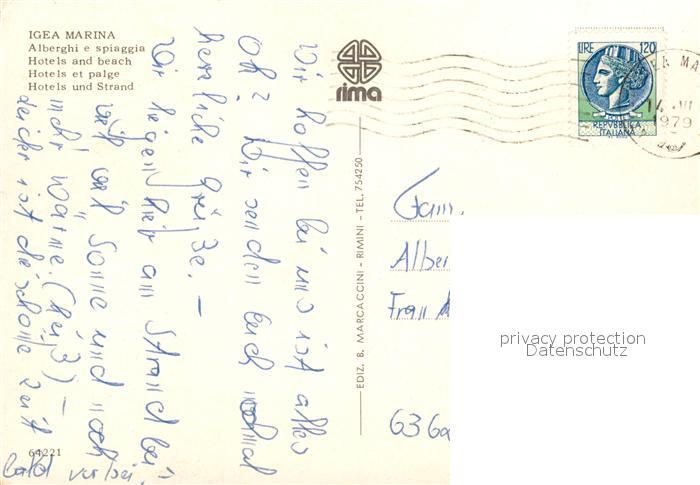 IGEA MARINA
Alberghi e spiaggia
Hotels and beach
Hotels et palge
Hotels und Strand
rima
LIRE 120
REPVBBLICA
ITALIANA
EA MA
14. VI
1979
Wir hoffen bei uns ist alles
ok? Wir senden Euch
herzliche Grüße. –
Wir liegen hier am Strand bei
viel viel Sonne und noch
mehr Wärme. (heiß) –
leider ist die schöne Zeit
bald vorbei.
EDIZ. B. MARCACCINI - RIMINI - TEL. 754250
Fam.
Alber
Frau
636
privacy protection
Datenschutz
64221